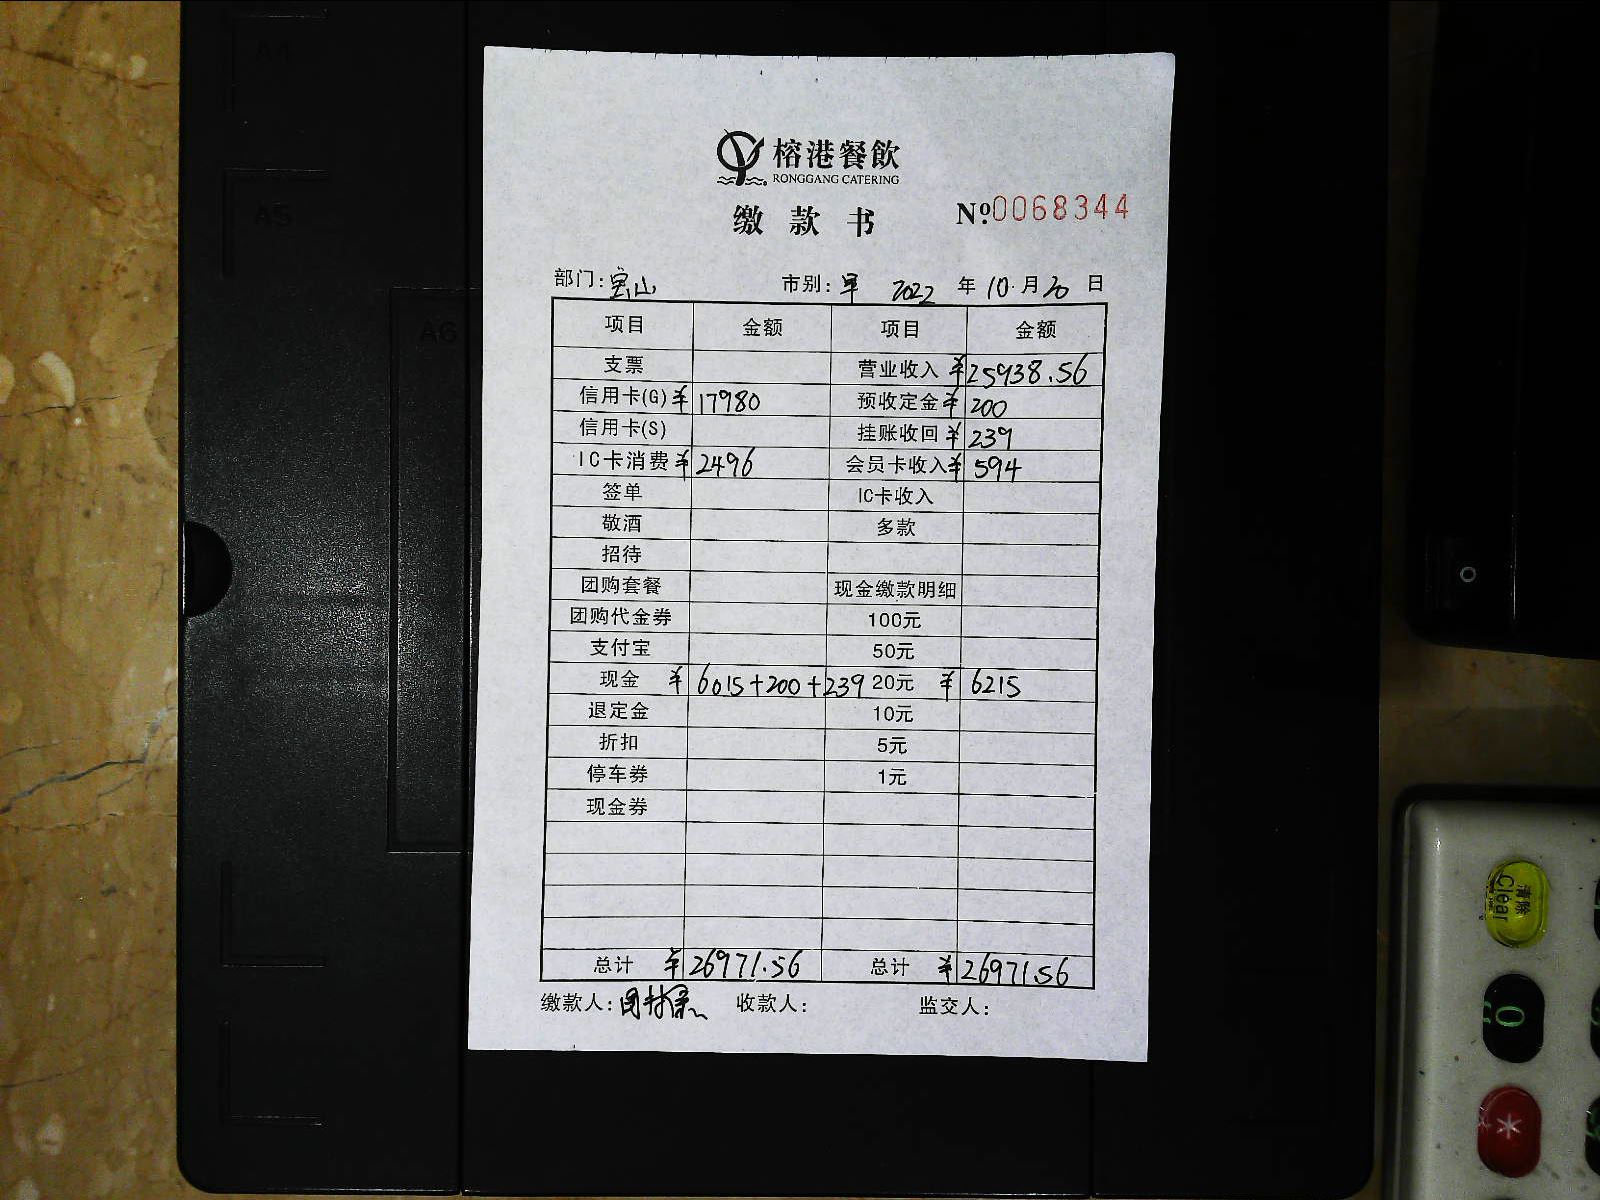 A4
A5
A6
榕港餐飲
RONGGANG CATERING
缴款书 Nº.0068344
部门:宝山 市别:早 2022年10月20日
项目 金额 项目 金额
支票 营业收入 ¥25938.56
信用卡(G) ¥17980 预收定金 ¥200
信用卡(S) 挂账收回 ¥239
IC卡消费 ¥2496 会员卡收入 ¥594
签单 IC卡收入
敬酒 多款
招待
团购套餐 现金缴款明细
团购代金券 100元
支付宝 50元
现金 ¥6015+200+239 20元 ¥6215
退定金 10元
折扣 5元
停车券 1元
现金券
总计 ¥26971.56 总计 ¥26971.56
缴款人: 收款人: 监交人:
清除
Clear
0
*